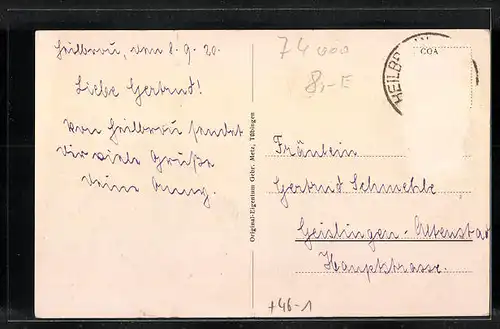 Heilbronn, den 8.9.20.
Liebe Gertrud!
Von Heilbronn sendet
dir viele Grüße
deine Anny.
Original-Eigentum Gebr. Metz, Tübingen
74000
8,-E
HEILBR
COA
Fräulein
Gertrud Schmehle
Geislingen-Altenstadt
Hauptstrasse.
+46-1